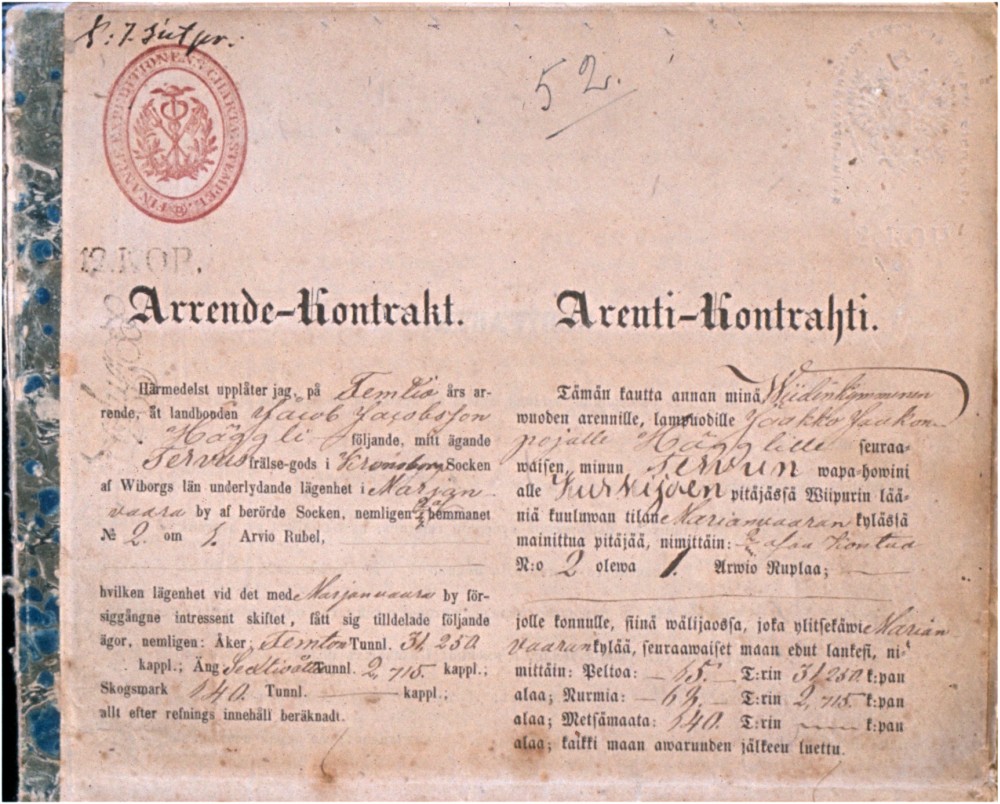 52.
FINANCE EXPEDITIONENS CHARTÆ STEMPEL
12.KOP.
Arrende-Kontrakt.
Härmedelst upplåter jag, på Femtio års ar-
rende, åt landbonden Jacob Jacobsson
Häggli följande, mitt ägande
Tervus frälse-gods i Kronoborg Socken
af Wiborgs län underlydande lägenhet i Marjan
vaara by af berörde Socken, nemligen hemmanet
№ 2. om 1. Arvio Rubel,
hvilken lägenhet vid det med Marjanvaara by för-
siggångne intressent skiftet, fått sig tilldelade följande
ägor, nemligen: Åker; Femton Tunnl. 31.250.
kappl.; Äng Sextiotvå Tunnl. 2,715. kappl.;
Skogsmark 140. Tunnl. kappl.;
allt efter refnings innehåll beräknadt.
Arenti-Kontrahti.
Tämän kautta annan minä, Wiidenkymmenen
wuoden arennille, lampuodille Jaakko Jaakon
pojalle Hägglille seuraa-
waisen, minun Tervun wapa-howini
alle Kurkijoen pitäjässä Wiipurin lää-
niä kuuluwan tilan Marianvaaran kylästä
mainittua pitäjää, nimittäin:
N:o 2 olewa 1. Arwio Ruplaa;
jolle konnulle, siinä wälijaossa, joka ylitsekäwi Marian
vaaran kylää, seuraawaiset maan edut lankesi, ni-
mittäin: Peltoa: 15. T:rin 31.250. k:pan
alaa; Nurmia: 62. T:rin 2,715. k:pan
alaa; Metsämaata: 140. T:rin k:pan
alaa; kaikki maan awaruuden jälkeen luettu.